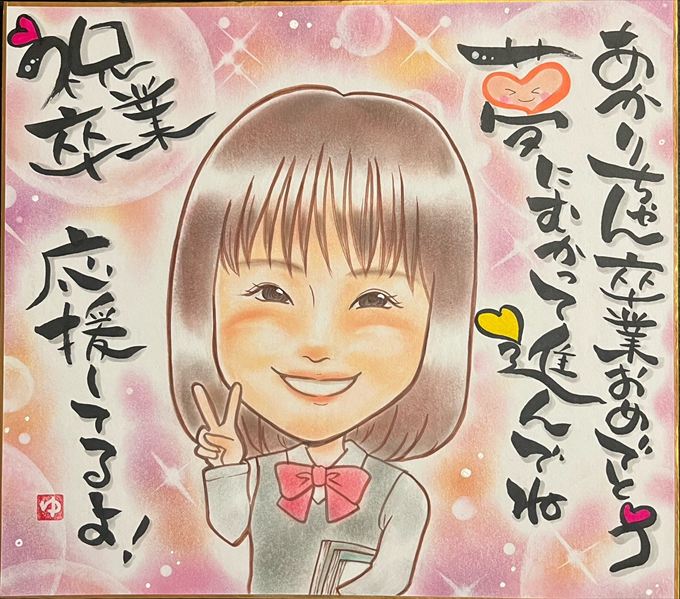 あかりちゃん卒業おめでとう
夢にむかって
進んでね
祝
卒業
応援してるよ!
ゆ